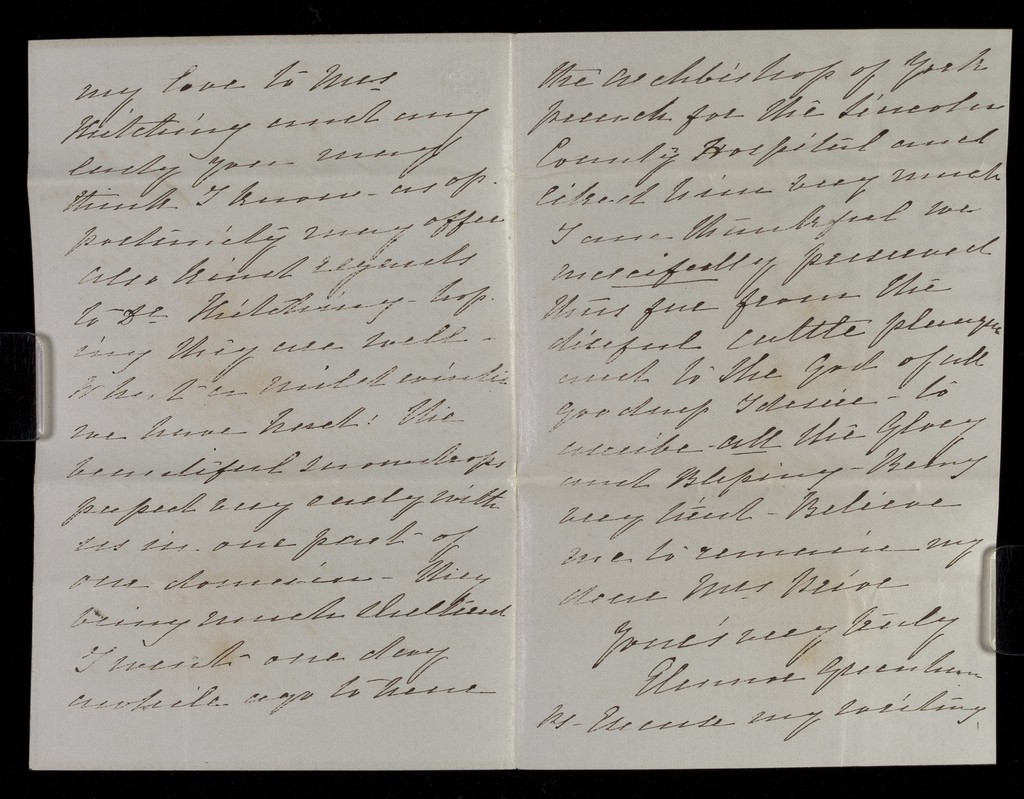 my love to Mrs
Kitching and any
lady you may
think I know - as op-
portunity may offer
also kind regards
to Dr Kitching - hop-
ing they are well -
What a mild winter
we have had! The
beautiful snowdrops
peeped very early with
us in one part of
our domain - They
being much sheltered
I went one day
awhile ago to hear
the Archbishop of York
preach for the Lincoln
County Hospital and
liked him very much
I am thankful we
mercifully preserved
thus far from the
direful cattle plague
and to the God of all
goodness I desire - to
ascribe all the Glory
and Blessing - Being
very tired - Believe
me to remain my
dear Mrs
Your's very truly
Elenor Greenham
Ps - Excuse my writing